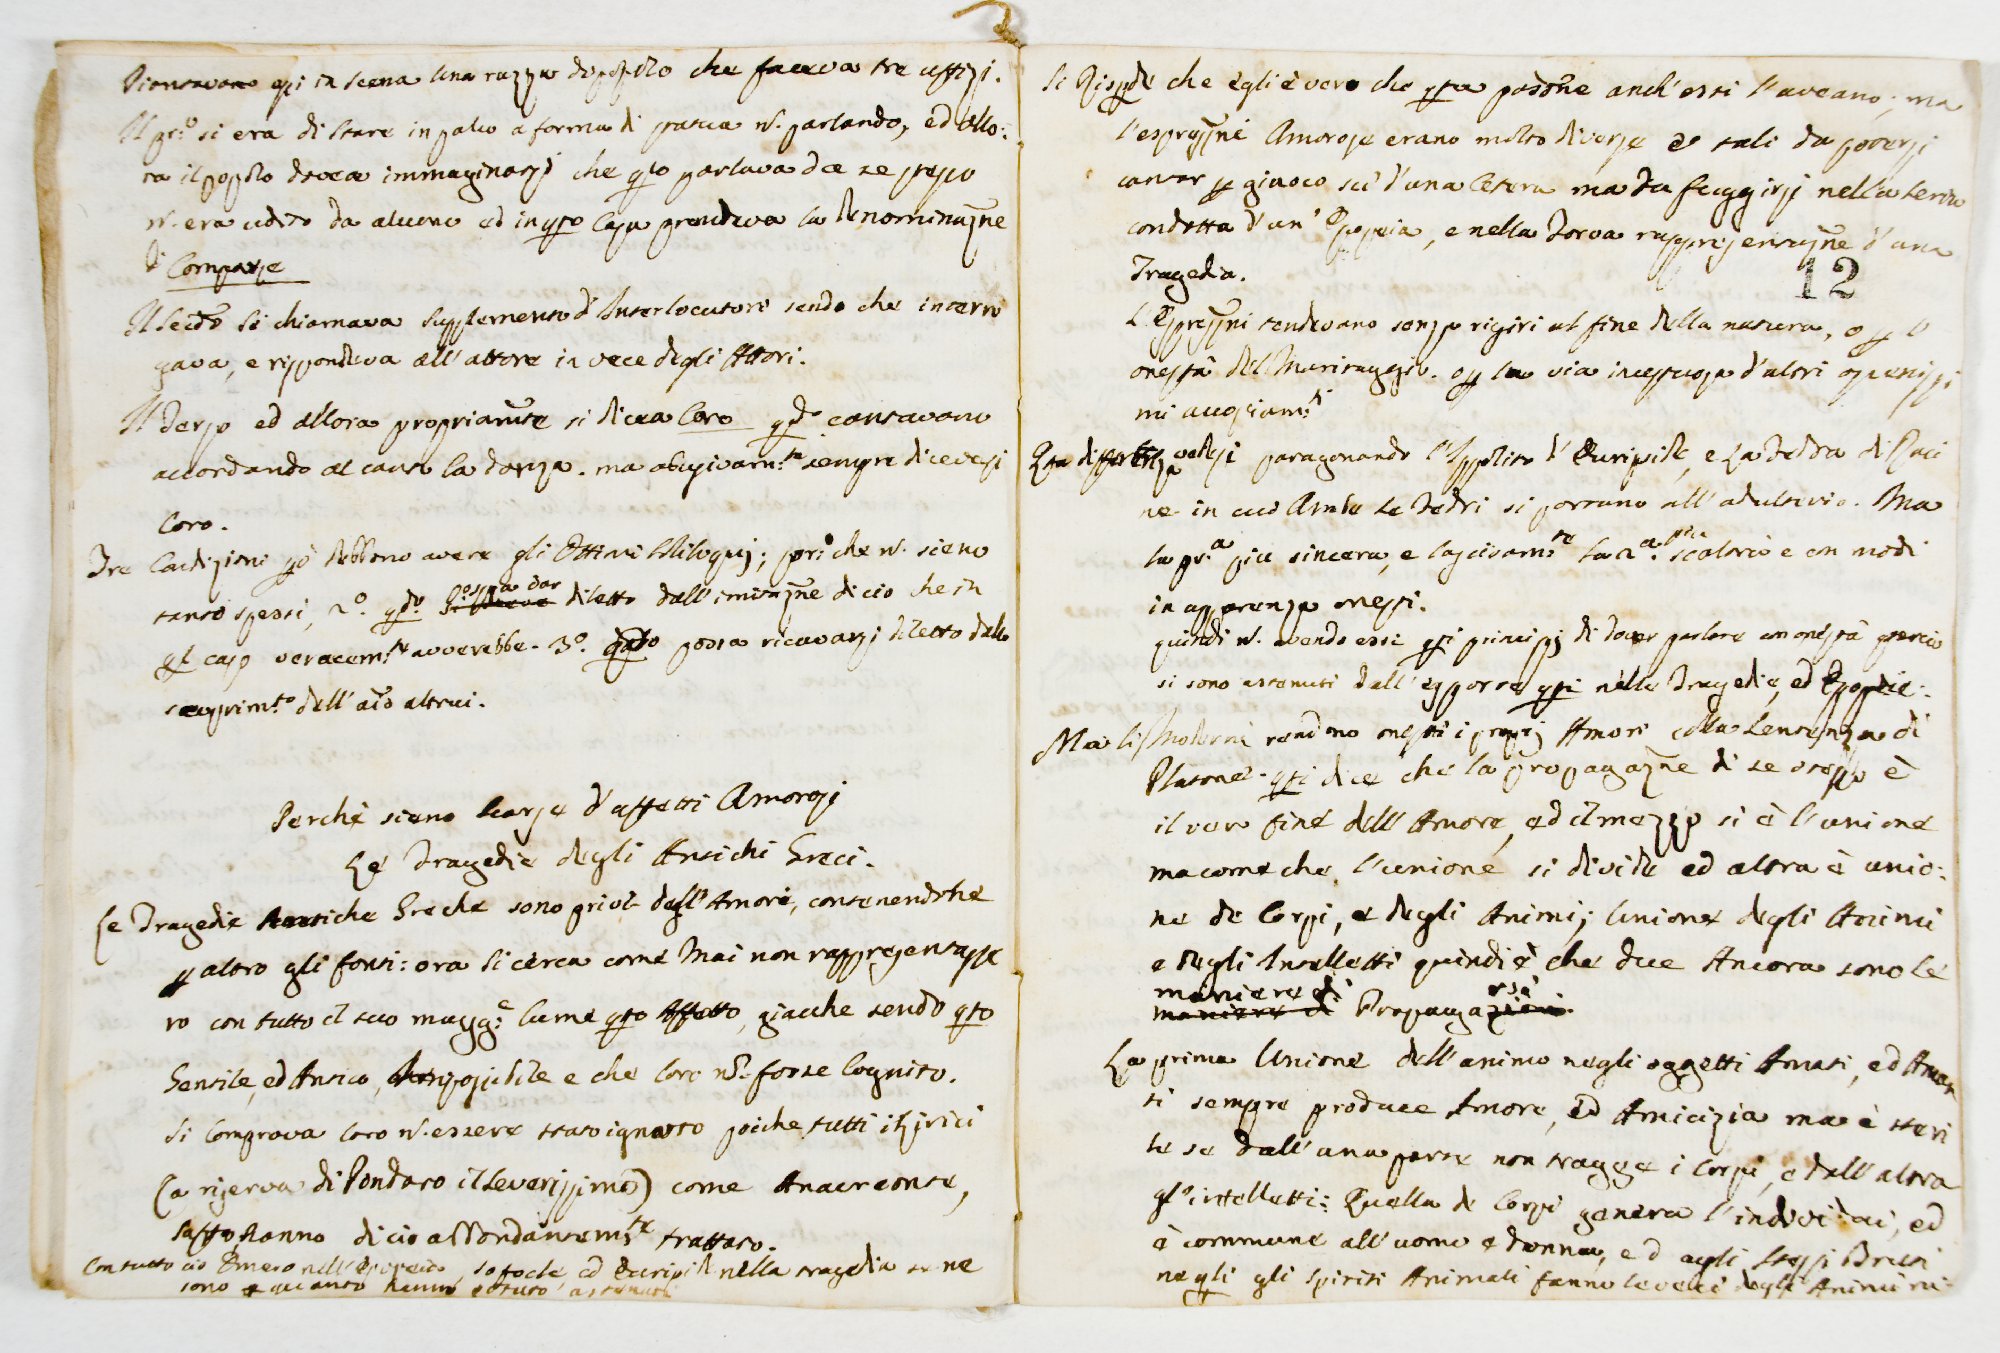 Piantavano essi in scena una razza di popolo che faceva tre uffizj.
Il pr.o si era di stare in palco a forma di n. parlando, ed allo:
ra il popolo dovea immaginarsi che qsto parlava da se stesso
n. era udito da alcuno ed in qsto caso prendeva la denominazne
di Comparse
Il secdo si chiamava supplemento d'Interlocutore sendo che interro
gava, e rispondeva all'attore in vece degli Attori.
Il Terzo ed allora propriamte si dicea Coro qdo cantavano
accordando al canto la danza. ma sempre dicevasi
Coro.
Tre Condizioni debbono avere gli Ottimi Soliloquj; pr.o che n. sieno
tanto spessi, 2.o qdo si possa dar diletto dall'imitazne di cio che in
qel caso veracem.te avverebbe. 3.o qdo possa ricavarsi diletto dallo
scoprim.to dell'aio altrui.
Perchè sieno scarse d'affetti Amorosi
Le Tragedie degli Antichi Greci.
Le Tragedie Antiche Greche sono prive dell'Amore, contenendone
p altro gli fonti: ora si cerca come Mai non rappresentasse
ro con tutto il suo magg.e lume qsto Affetto, giacche sendo qsto
Gentile, ed Antico, impossibile e che loro n. fosse Cognito.
Si comprova loro n. essere stato ignoto poiche tutti i Lirici
(a riserva di Pindaro il severissimo) come Anacreonte,
Saffo, hanno di cio abbondantem.te trattato.
Con tutto cio Omero nell'Epopeia, Sofocle, ed Euripide nella tragedia se ne
sono quanto hanno potuto astenuti
Si Rispde che egli è vero che qsta passione anch'essi l'aveano, ma
l'espressni Amorose erano molto diverse e tali da potersi
cantar p giuoco su d'una Cetera ma da fuggirsi nella seria
condotta d'un' Epopeia, e nella Torva rappresentazne d'una
Tragedia.
12
L'Espressni tendevano senza rigiri al fine della natura, o p l'
onestà del Maritaggio. o p la via incestuosa d'altri
mi
Qsta differenza vedesi paragonando l'Ippolito d'Euripide, e La Fedra di Raci
ne in cui Ambe le Fedri si portano all'adulterio. Ma
la pr.a piu sincera, e lascivam.te la 2.a e con modi
in apparenza onesti.
quindi n. avendo essi qsti principj di dover parlare con onestà
si sono astenuti dall'esporre qsti nelle Tragedie, ed Epopeie.
Ma li Moderni rendono onesti i proprj Amori colla Sentenza di
Platone. qsti dice che la propagazne di se stesso è
il vero fine dell'Amore, ed il mezzo si è l'unione
ma come che l'unione si divide ed altra è unio:
ne de Corpi, e degli Animi; Unione degli Animi
e degli Intelletti quindi è che due Ancora sono le
maniere di Propagarsi.
La prima Unione dell'animo negli oggetti Amati, ed Aman
ti sempre produce Amore, ed Amicizia ma è steri
le se dall'una parte non tragge i Corpi, e dall'altra
gl'intelletti: Quella de Corpi genera l'individui, ed
è commune all'uomo e donna, ed agli stessi Bruti
negli gli spiriti Animali fanno le veci degli Animi